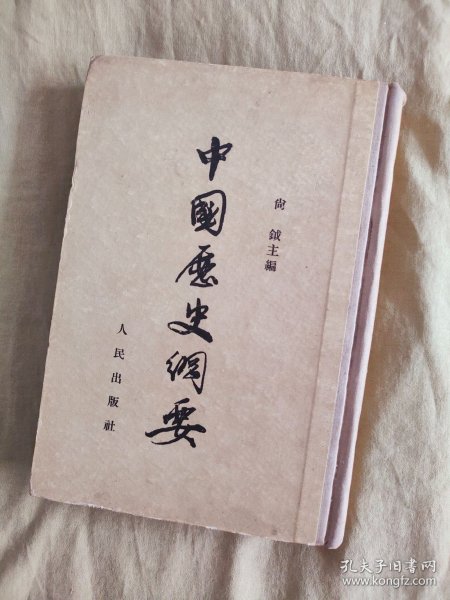 尙 鉞主編
中國歷史綱要
人民出版社
孔夫子旧书网
www.kongfz.com